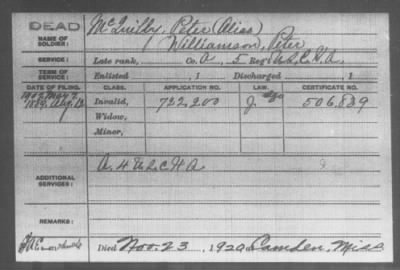 DEAD
NAME OF SOLDIER:
McQuilby, Peter (Alias)
Williamson, Peter
SERVICE:
Late rank, Co. A, 5 Reg't U.S.C.H.A.
TERM OF SERVICE:
Enlisted , 1 Discharged , 1
DATE OF FILING. CLASS. APPLICATION NO. LAW. CERTIFICATE NO.
1889, Aug. 12 Invalid, 722,200 J. 506,889
Widow,
Minor,
ADDITIONAL SERVICES:
A. 4 U.S.C.H.A.
REMARKS:
Died Nov. 23, 1920 Camden, Miss.